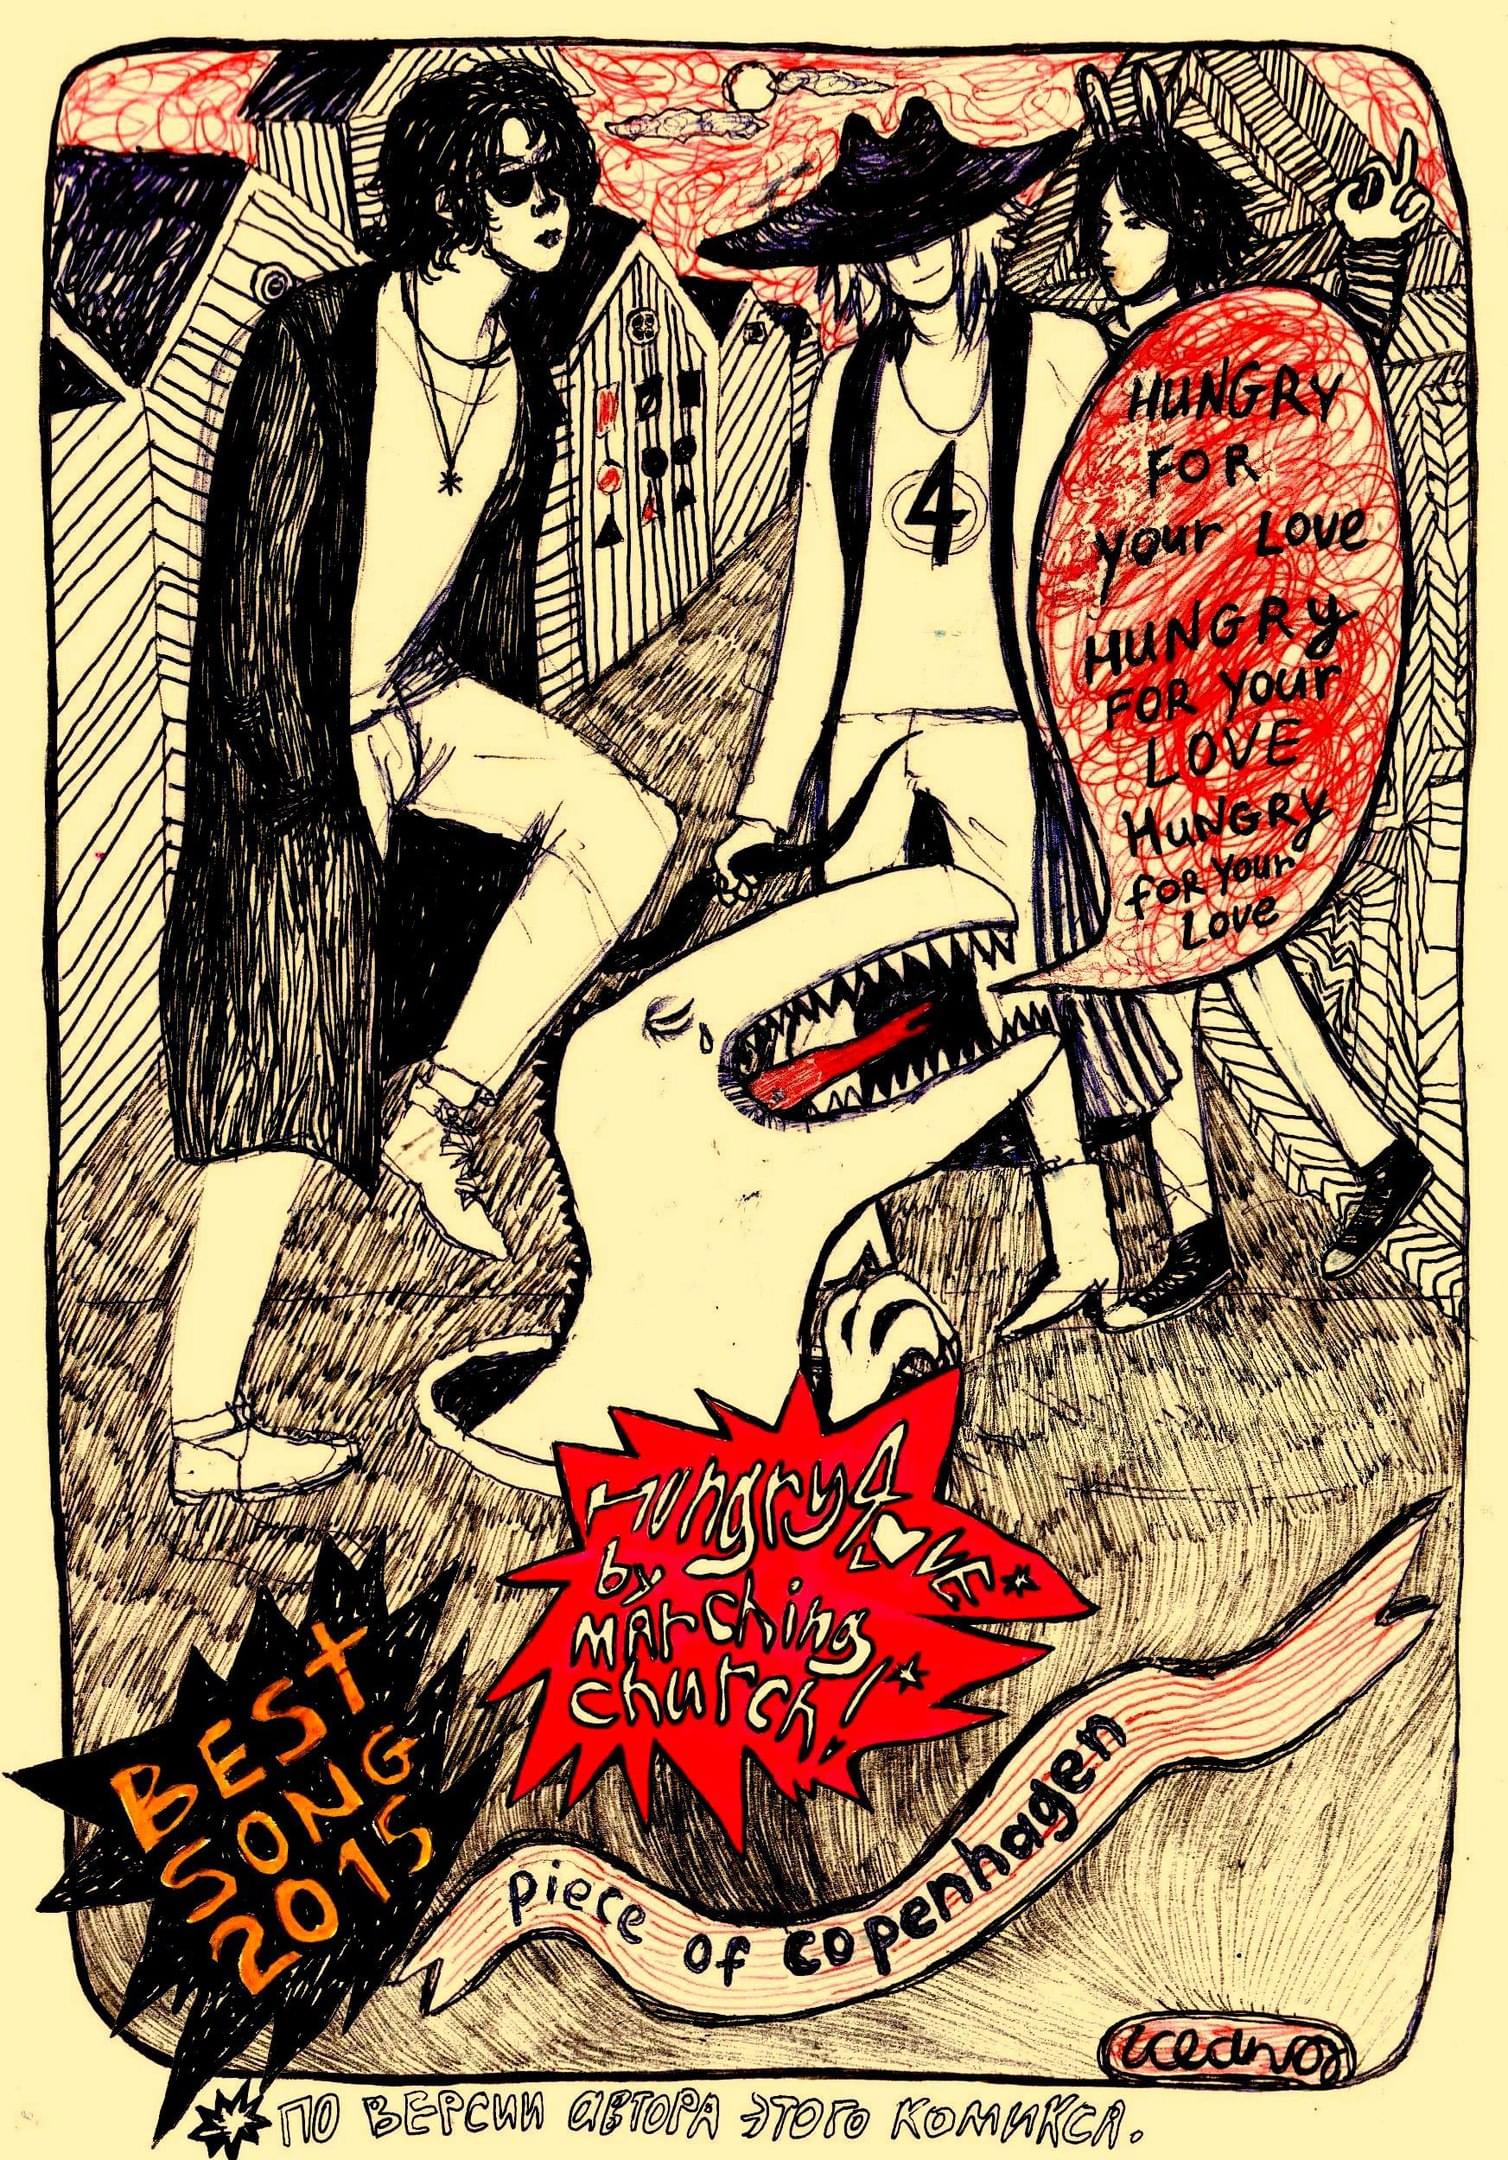 4
HUNGRY
FOR
your Love
HUNGRY
FOR your
LOVE
HuNGRY
for your
Love
Hungry 4 LOVE
by
mArching
church!
BEST
SONG
2015
piece of copenhagen
ПО ВЕРСИИ АВТОРА ЭТОГО КОМИКСА.